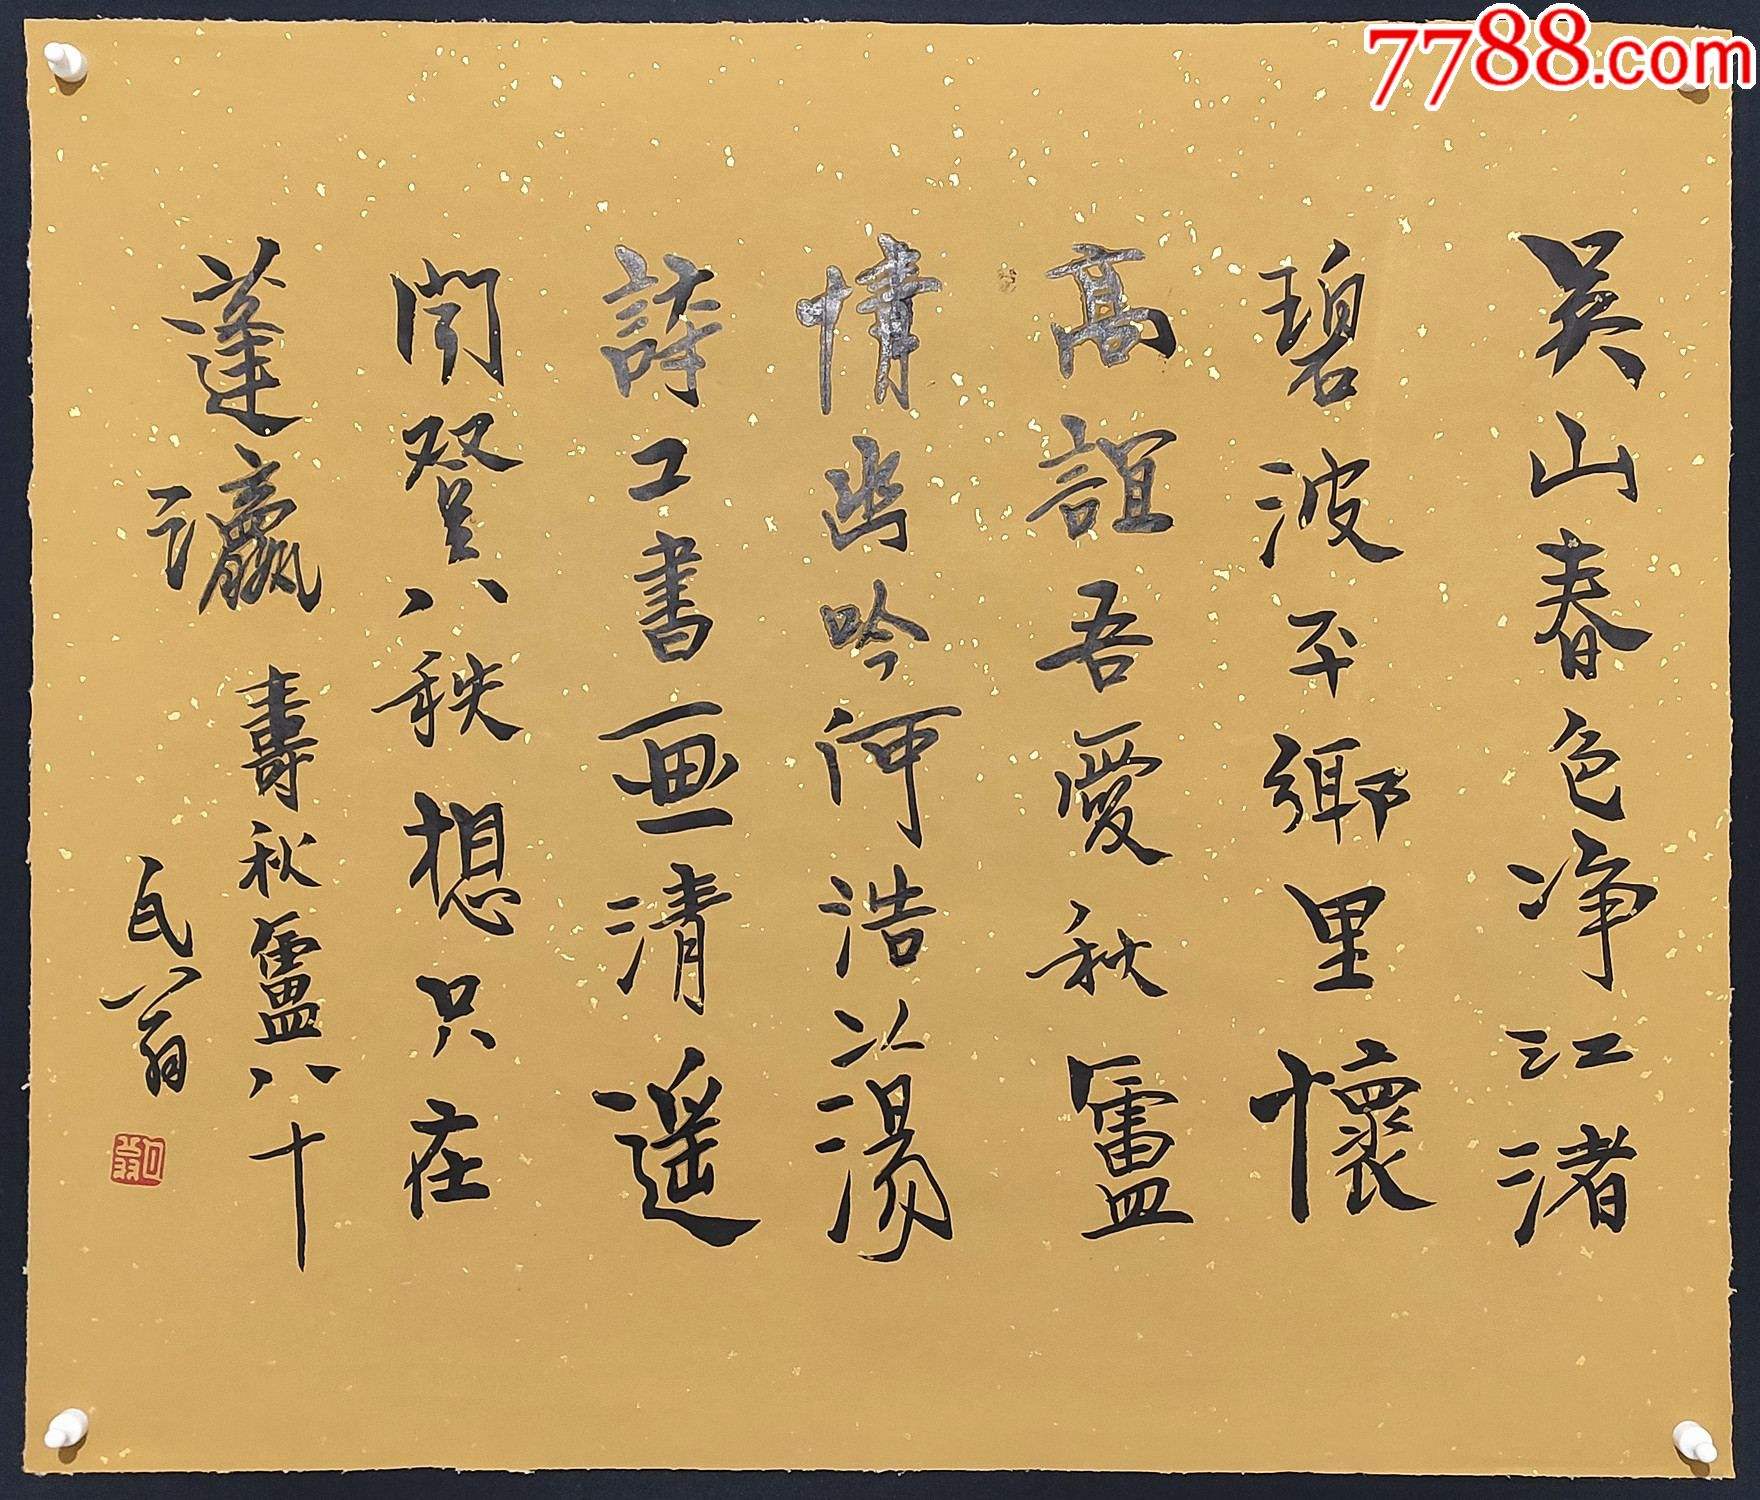 吴山春色净江渚
碧波平鄉里懷
高誼吾愛秋盧
情幽吟何浩蕩
詩工書画清遥
聞登八秩想只在
蓬瀛 壽秋盧八十
民翁
7788.com